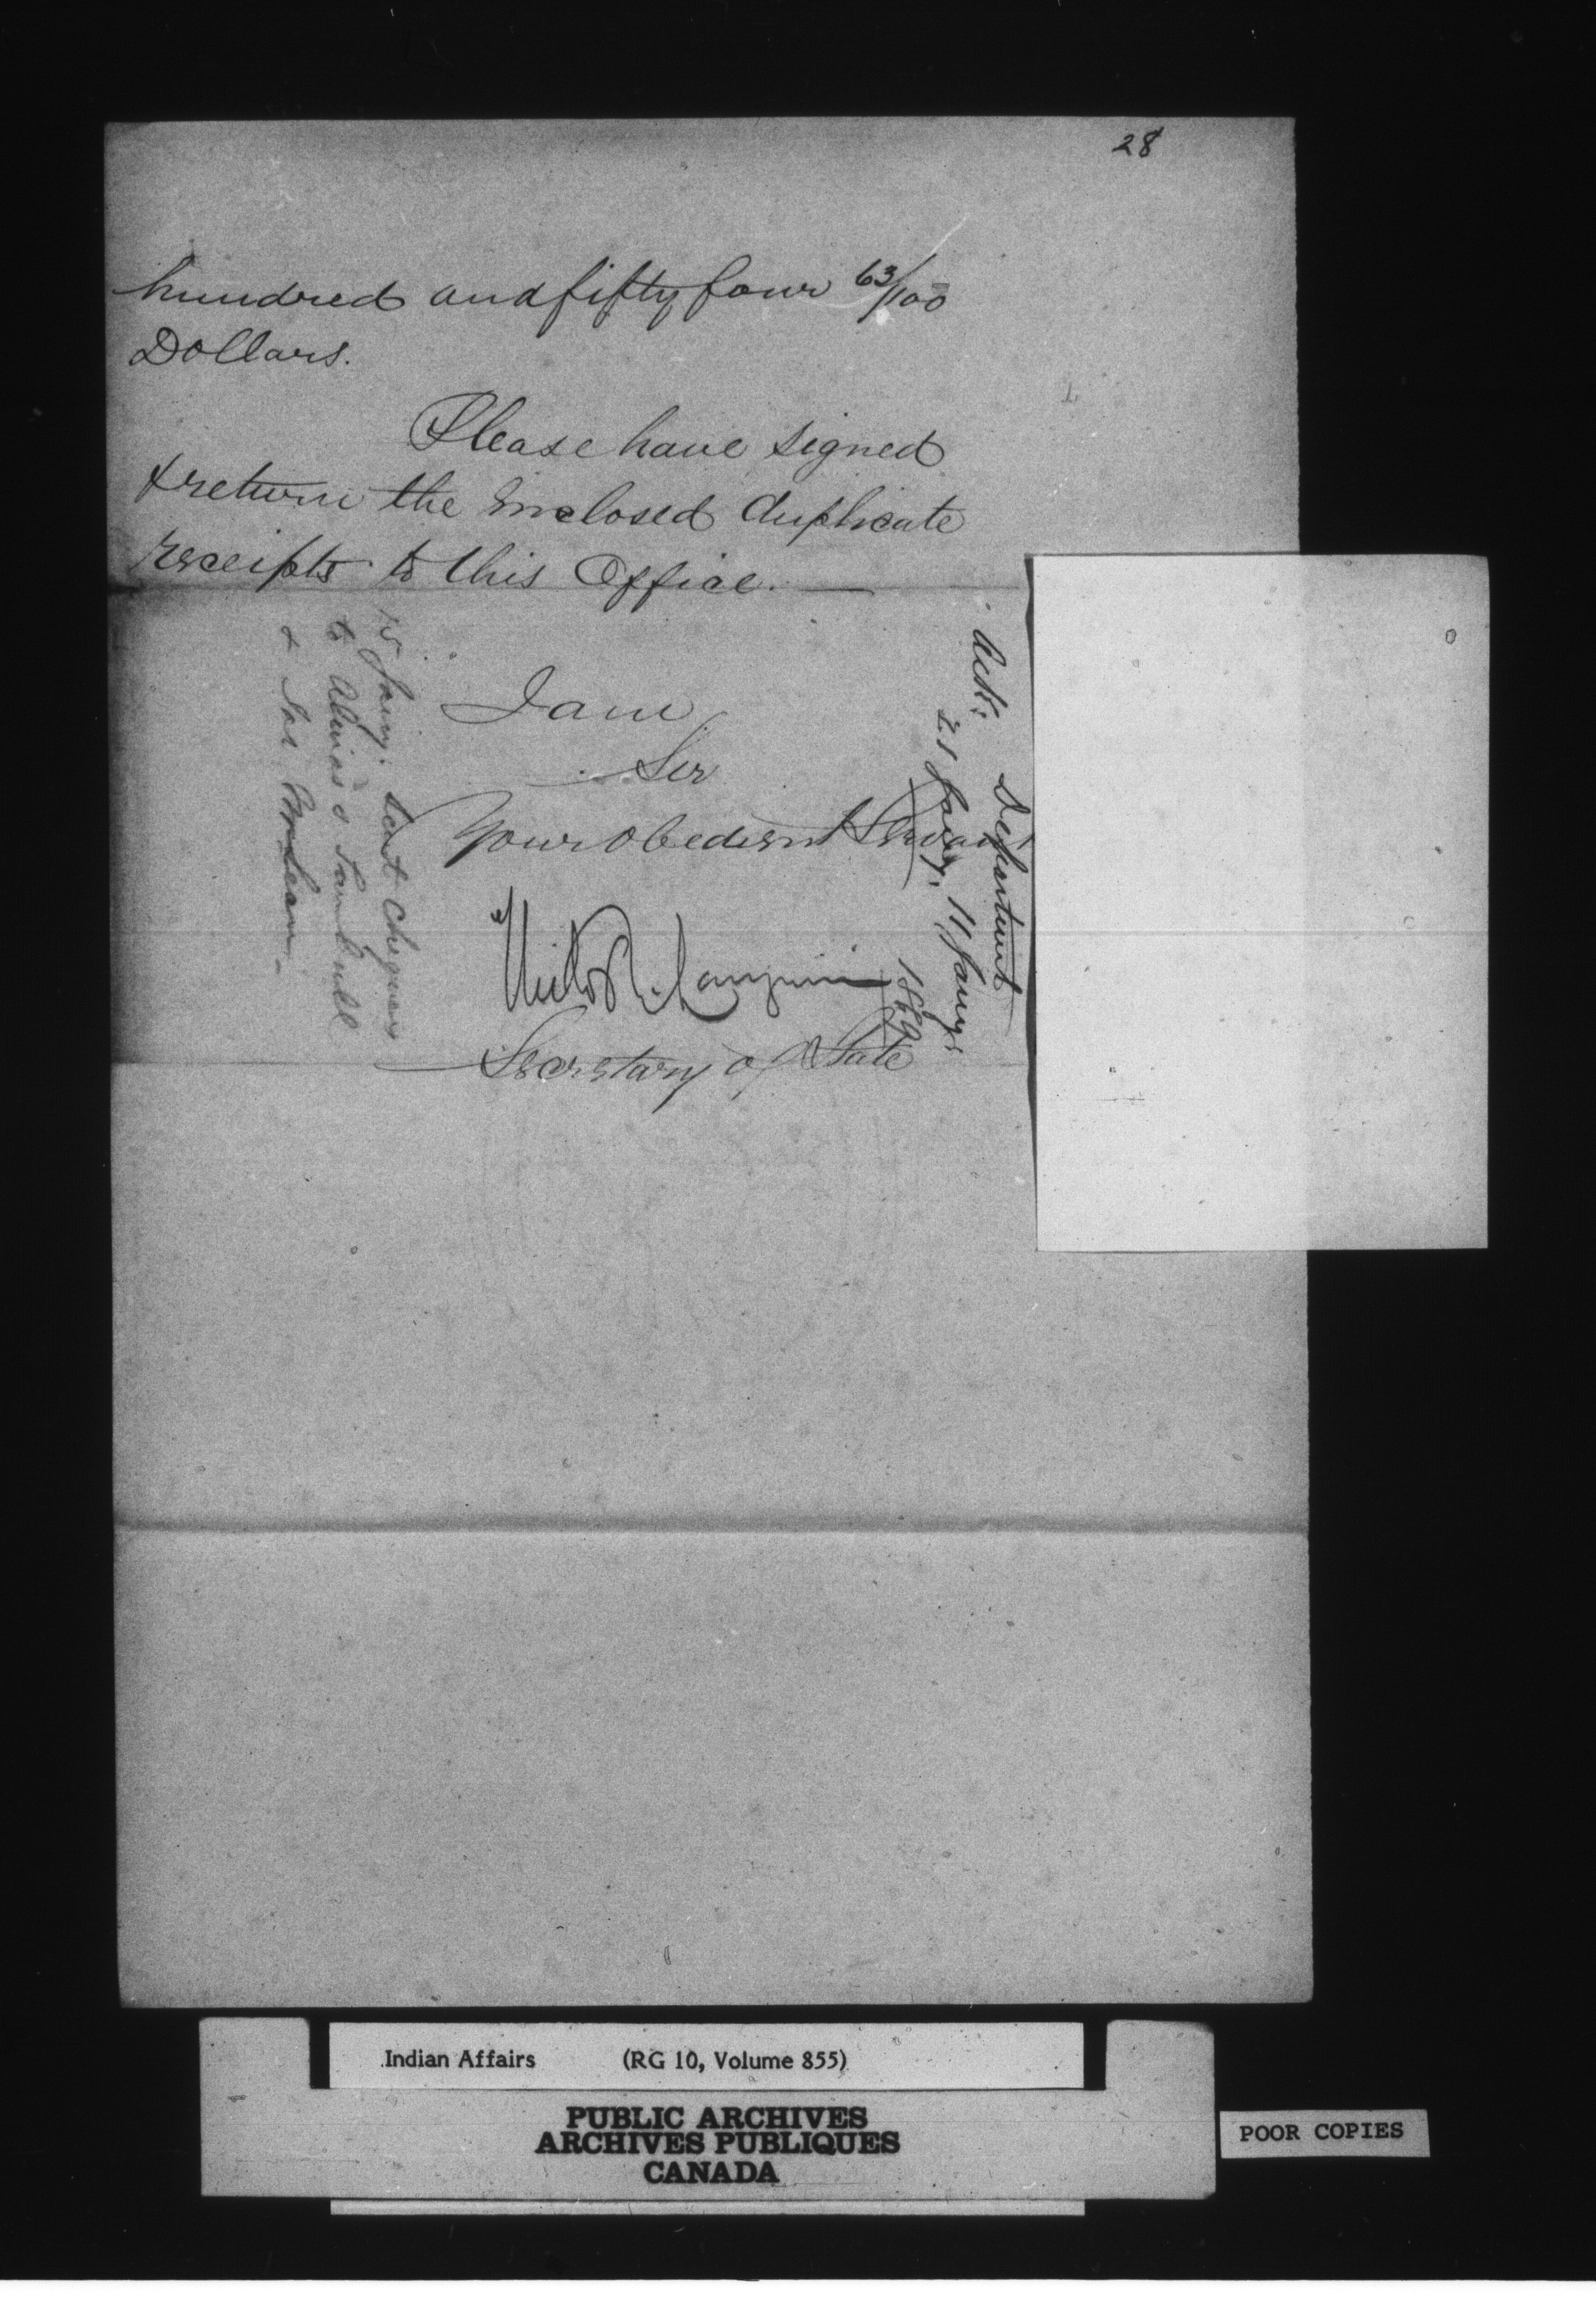 28
hundred and fifty four 63/100
Dollars.
Please have signed
& return the enclosed duplicate
receipts to this Office. —
I am
Sir
Your obedient Servant
Secretary of State
15 Jany. sent cheques
to
&
Ack.
21 Jany.
Department
11 Jany.
1869
Indian Affairs (RG 10, Volume 855)
PUBLIC ARCHIVES
ARCHIVES PUBLIQUES
CANADA
POOR COPIES